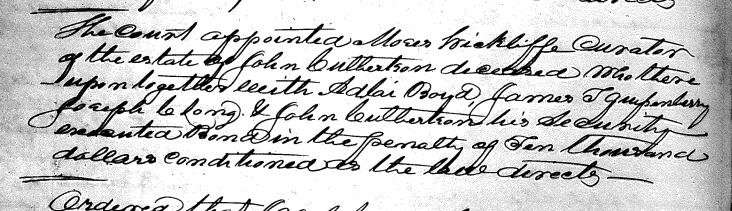 The Court appointed Moses Wickliffe Curator
of the estate of John Culbertson deceased Who there
upon together with Adlai Boyd, James T
Joseph C Long & John Culbertson his Security
executed Bond in the penalty of Ten thousand
dollars conditioned as the law directs
Ordered that